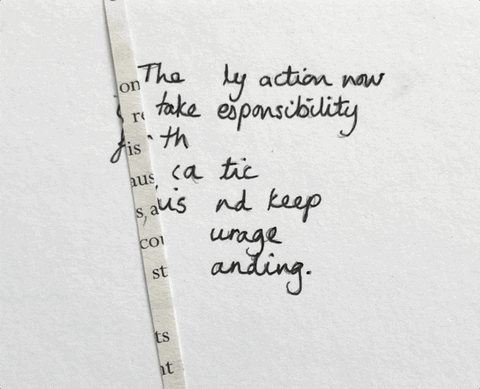 on The ly action now
re take esponsibility
is th
aus ca tic
s, a us nd keep
cou urage
st anding.
ts